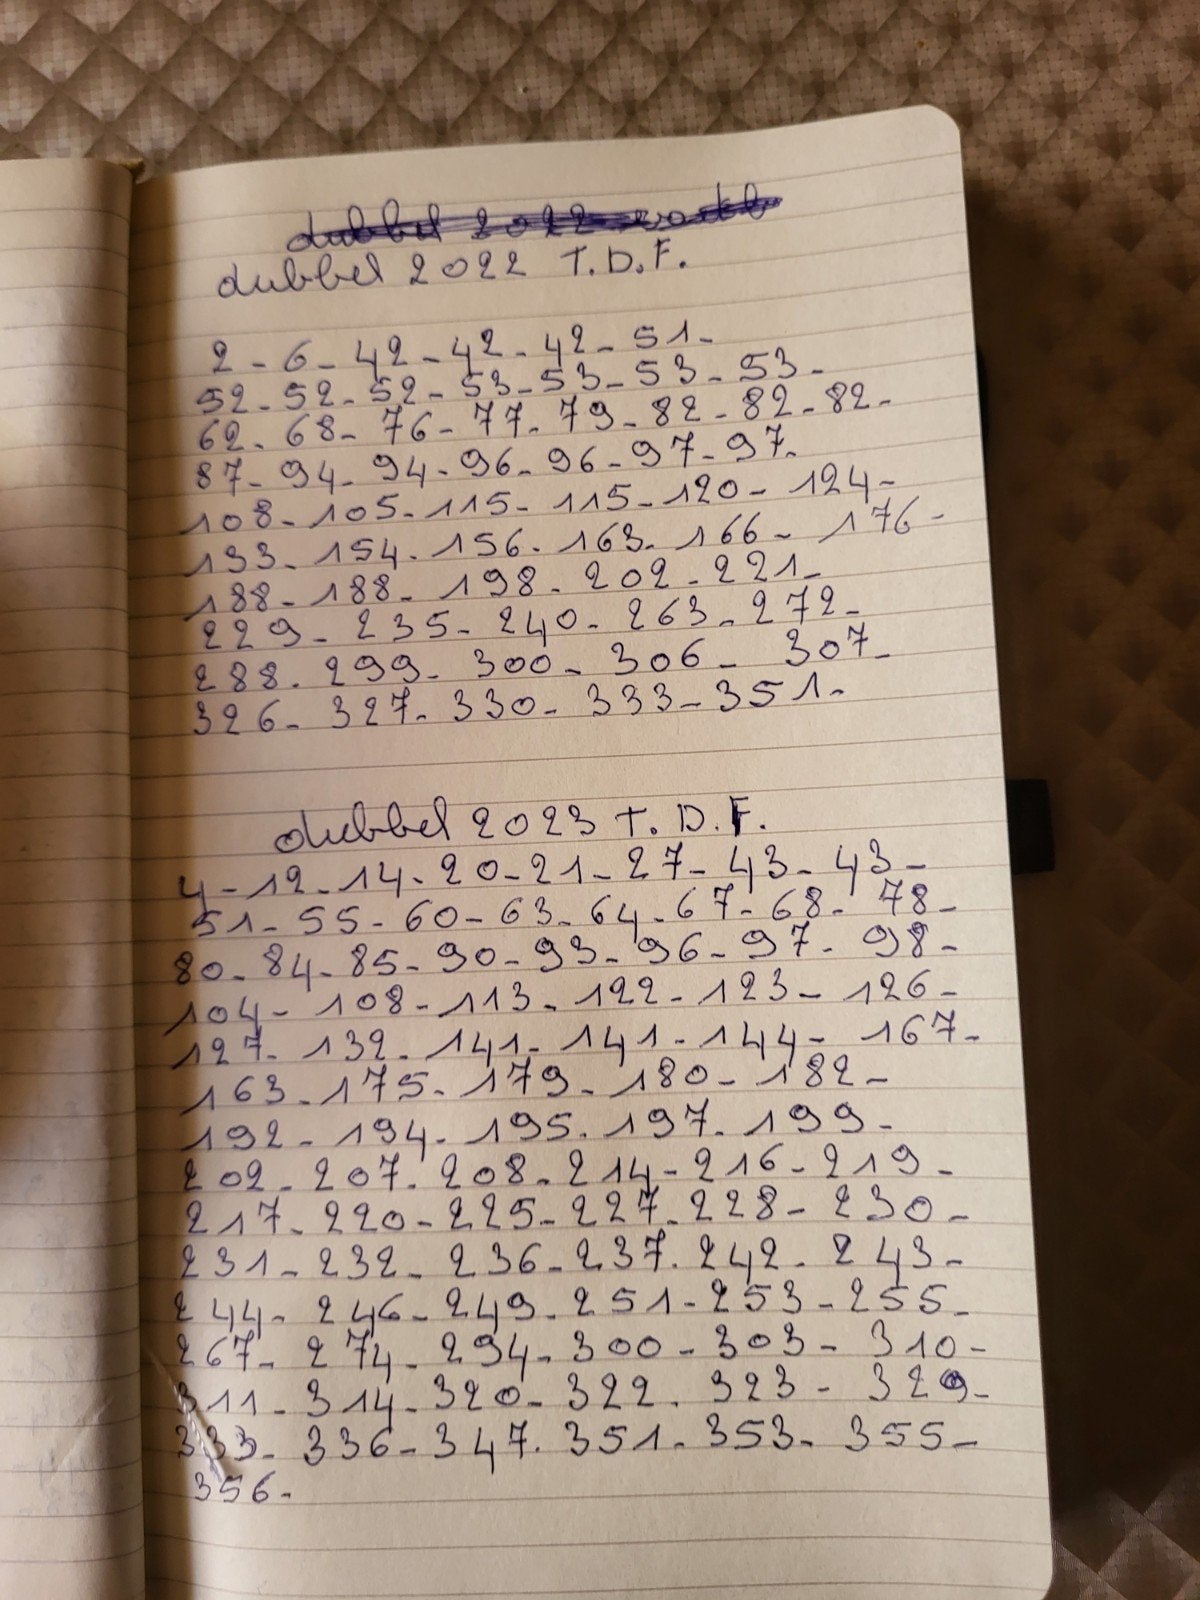 dubbel 2022
dubbel 2022 T.D.F.
2 - 6 - 42 - 42 - 42 - 51 -
52 - 52 - 52 - 53 - 53 - 53 - 53 -
62 - 68 - 76 - 77 - 79 - 82 - 82 - 82 -
87 - 94 - 94 - 96 - 96 - 97 - 97.
108 - 105 - 115 - 115 - 120 - 124 -
133 - 154 - 156 - 163 - 166 - 176 -
188 - 188 - 198 - 202 - 221 -
229 - 235 - 240 - 263 - 272 -
288 - 299 - 300 - 306 - 307 -
326 - 327 - 330 - 333 - 351 -
dubbel 2023 T.D.F.
4 - 12 - 14 - 20 - 21 - 27 - 43 - 43 -
51 - 55 - 60 - 63 - 64 - 67 - 68 - 78 -
80 - 84 - 85 - 90 - 93 - 96 - 97 - 98 -
104 - 108 - 113 - 122 - 123 - 126 -
127 - 132 - 141 - 141 - 144 - 167 -
163 - 175 - 179 - 180 - 182 -
192 - 194 - 195 - 197 - 199 -
202 - 207 - 208 - 214 - 216 - 219 -
217 - 220 - 225 - 227 - 228 - 230 -
231 - 232 - 236 - 237 - 242 - 243 -
244 - 246 - 249 - 251 - 253 - 255 -
267 - 274 - 294 - 300 - 303 - 310 -
311 - 314 - 320 - 322 - 323 - 329 -
333 - 336 - 347 - 351 - 353 - 355 -
356 -